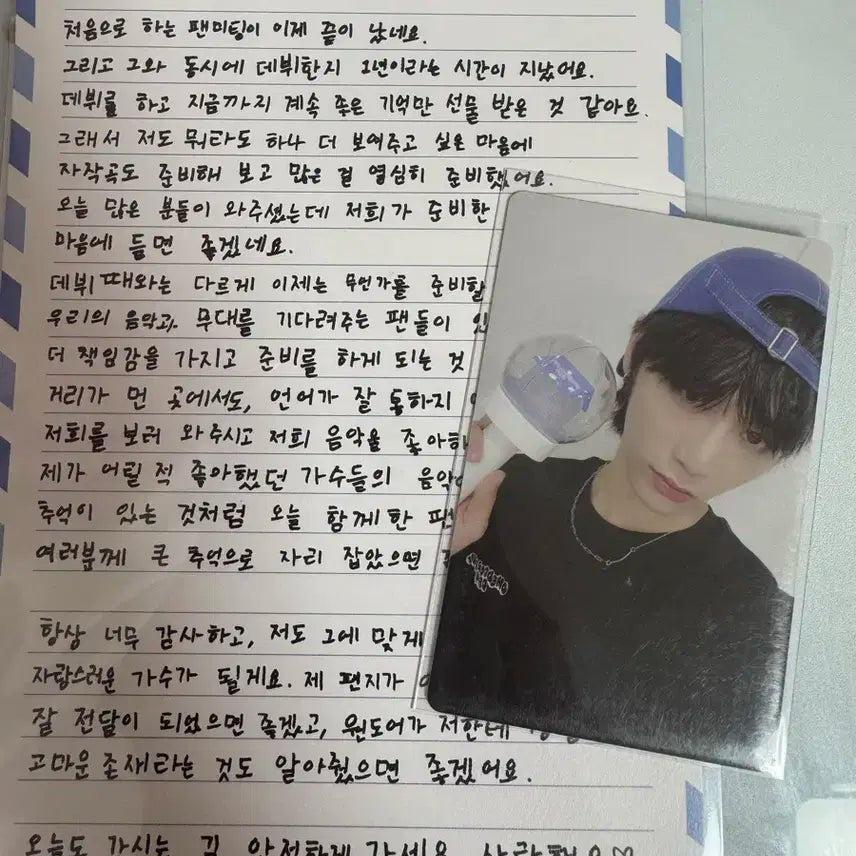 처음으로 하는 팬미팅이 이제 끝이 났네요.
그리고 그와 동시에 데뷔한지 1년이라는 시간이 지났어요.
데뷔를 하고 지금까지 계속 좋은 기억만 선물 받은 것 같아요.
그래서 저도 뭐라도 하나 더 보여주고 싶은 마음에
자작곡도 준비해 보고 많은 걸 열심히 준비했어요.
오늘 많은 분들이 와주셨는데 저희가 준비한
마음에 들면 좋겠네요.
데뷔 때와는 다르게 이제는 무언가를 준비할
우리의 음악과 무대를 기다려주는 팬들이
더 책임감을 가지고 준비를 하게 되는 것
거리가 먼 곳에서도, 언어가 잘 통하지
저희를 보러 와주시고 저희 음악을 좋아하
제가 어릴 적 좋아했던 가수들의 음악
추억이 있는 것처럼 오늘 함께한
여러분께 큰 추억으로 자리 잡았으면
항상 너무 감사하고, 저도 그에 맞게
자랑스러운 가수가 될게요. 제 편지가
잘 전달이 되었으면 좋겠고, 원도어가 저한테
고마운 존재라는 것도 알아줬으면 좋겠어요.
오늘도 가시는 길 안전하게 가세요 사랑해요♡